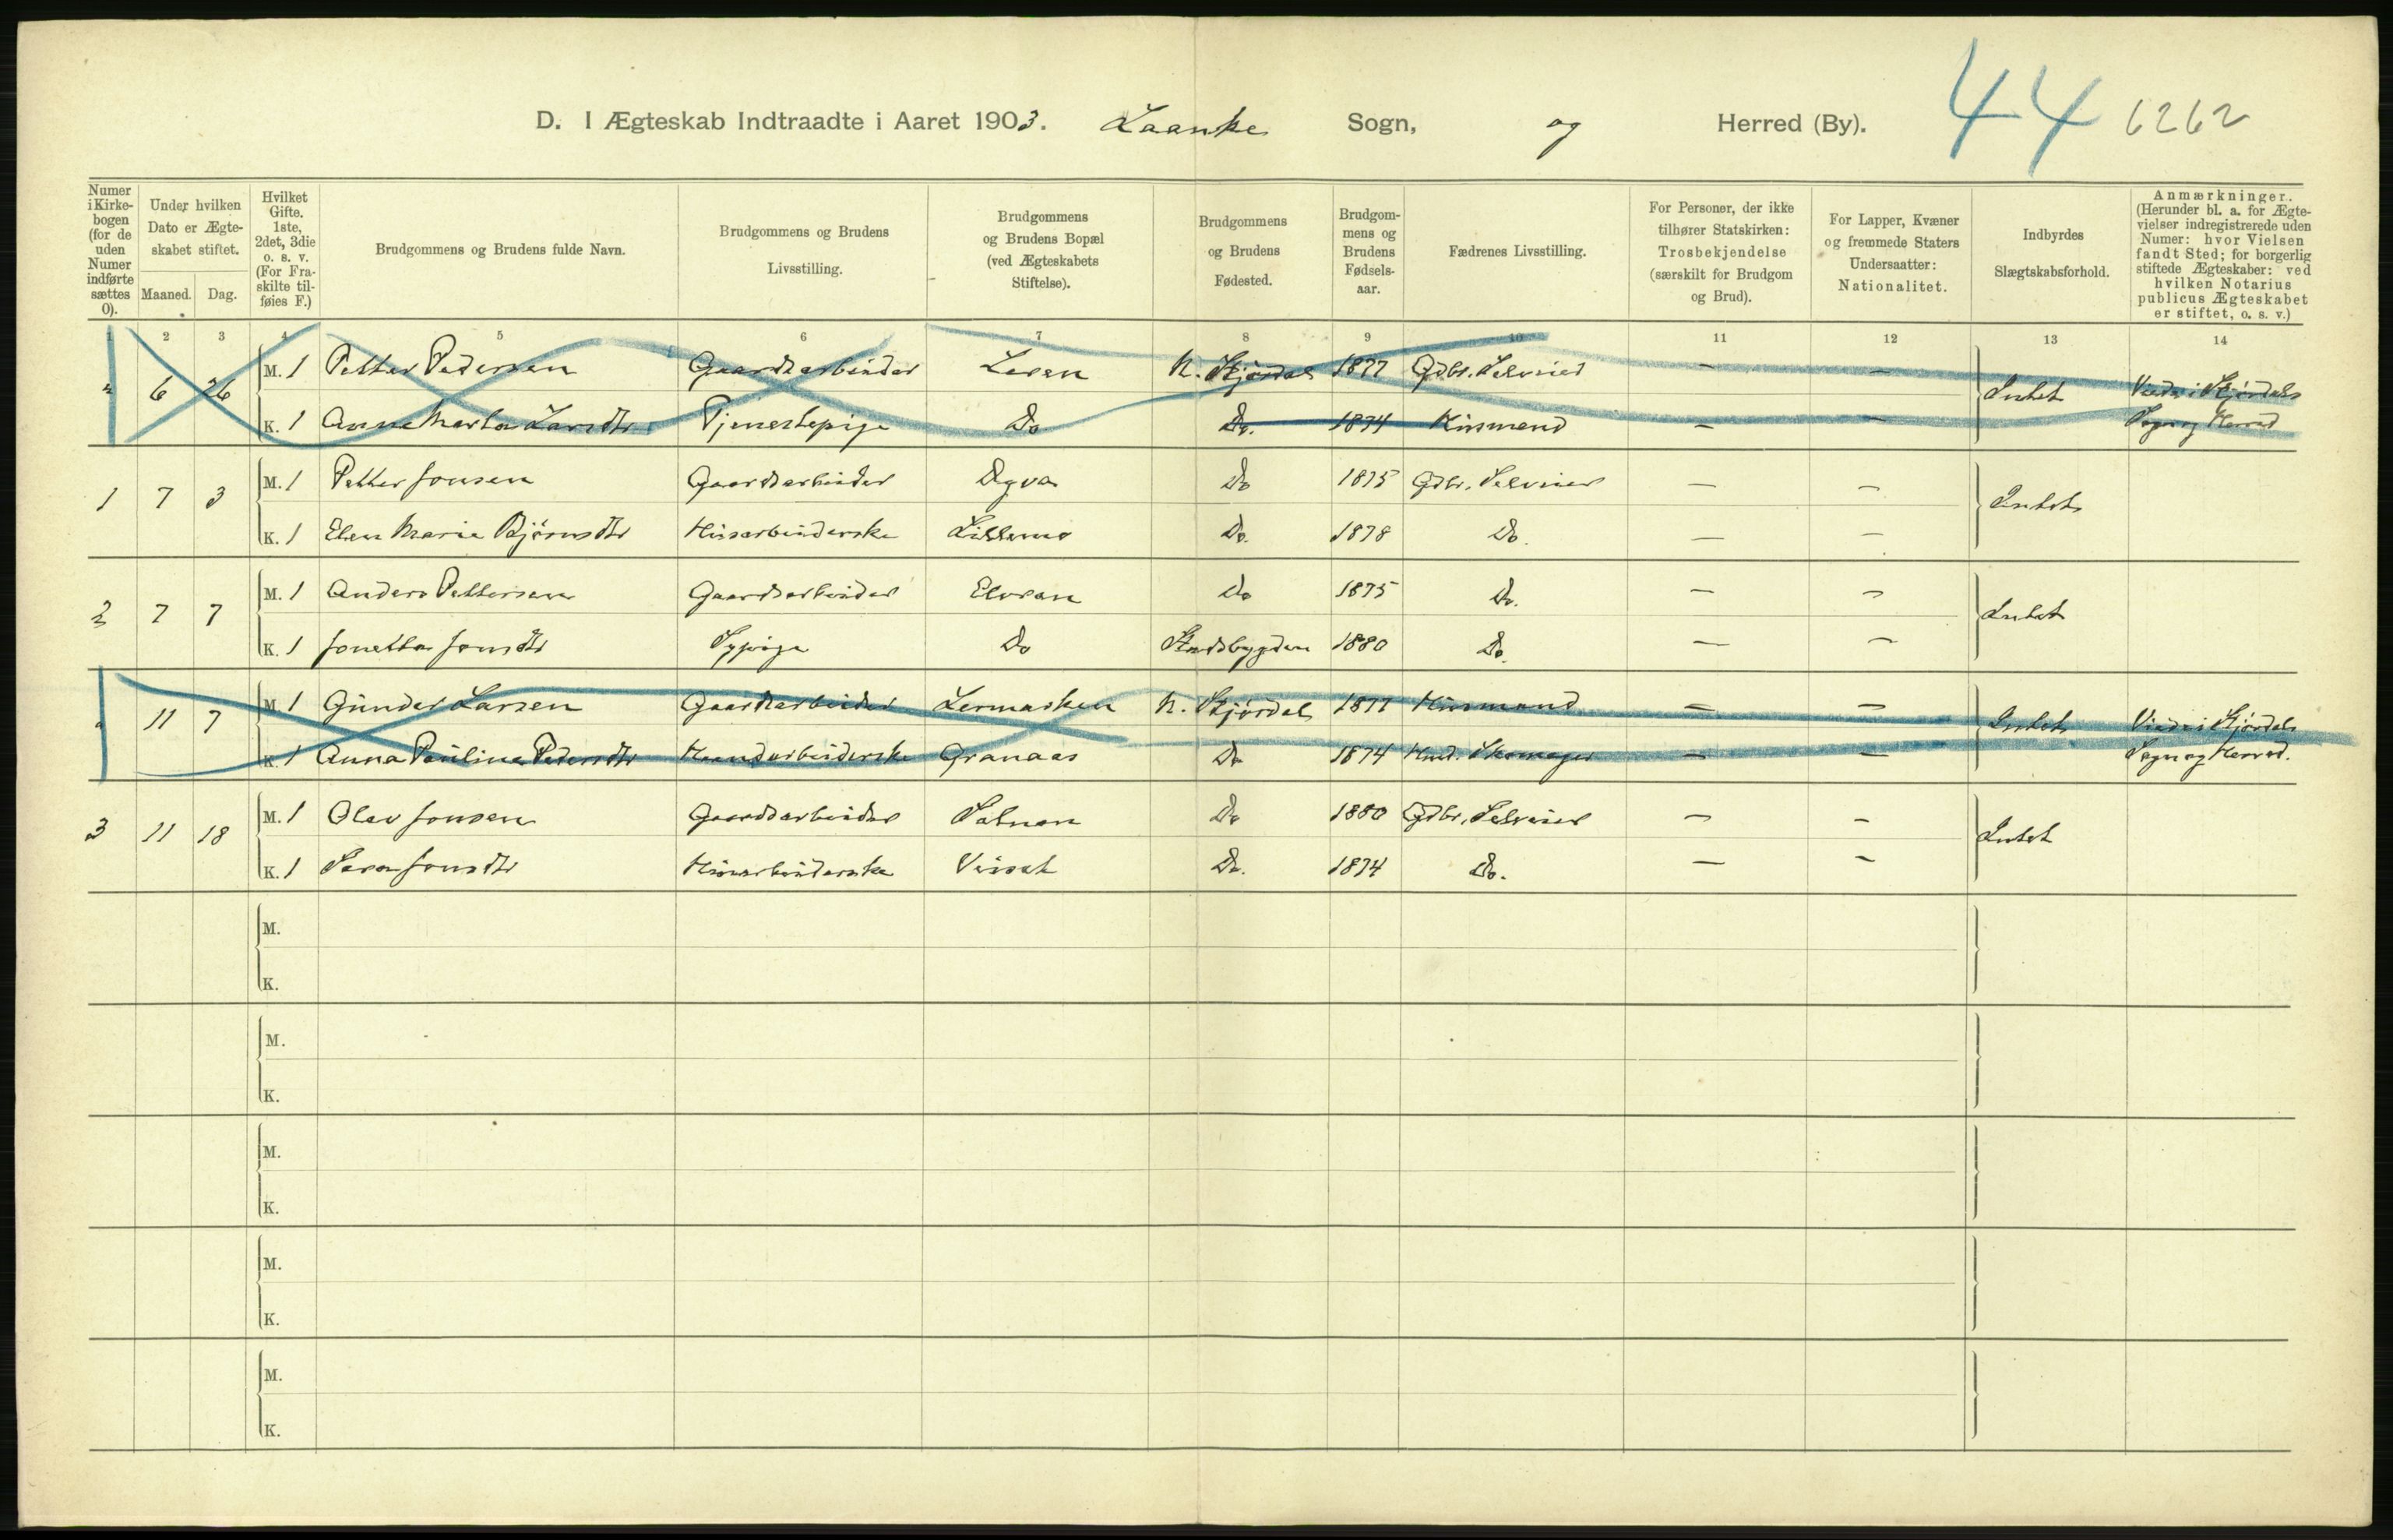 D. I Ægteskab Indtraadte i Aaret 1903. Laanke Sogn, og Herred (By). 44 6262
Numer i Kirkebogen (for de uden Numer indførte sættes 0).
Under hvilken Dato er Ægteskabet stiftet.
Maaned. Dag.
Hvilket Gifte. 1ste, 2det, 3die o. s. v. (For Fraskilte tilføies F.)
Brudgommens og Brudens fulde Navn.
Brudgommens og Brudens Livsstilling.
Brudgommens og Brudens Bopæl (ved Ægteskabets Stiftelse).
Brudgommens og Brudens Fødested.
Brudgommens og Brudens Fødselsaar.
Fædrenes Livsstilling.
For Personer, der ikke tilhører Statskirken: Trosbekjendelse (særskilt for Brudgom og Brud).
For Lapper, Kvæner og fremmede Staters Undersaatter: Nationalitet.
Indbyrdes Slægtskabsforhold.
Anmærkninger. (Herunder bl. a. for Ægtevielser indregistrerede uden Numer: hvor Vielsen fandt Sted; for borgerlig stiftede Ægteskaber: ved hvilken Notarius publicus Ægteskabet er stiftet, o. s. v.)
1 2 3 4 5 6 7 8 9 10 11 12 13 14
6 26 M. 1 Petter Pedersen Gaardsarbeider Leren N. Stjørdal 1877 Gdbr. Selveier — — Intet Viede i Stjørdals
K. 1 Anna Marta Larsdtr Tjenestepige Do Do. 1874 Husmand — — Sogn og Herred
1 7 3 M. 1 Petter Jonsen Gaardsarbeider Do 1875 Gdbr. Selveier — — Intet
K. 1 Elen Maria Bjørnsdtr Husarbeiderske Lillemo Do. 1878 Do. — —
2 7 7 M. 1 Anders Pettersen Gaardsarbeider Elvran Do 1875 Do. — — Intet
K. 1 Jonetta Jonsdtr Sypige Do Stadsbygden 1880 Do. — —
11 7 M. 1 Gunder Larsen Gaardsarbeider Lermarken N. Stjørdal 1877 Husmand — — Intet Viede i Stjørdals
K. 1 Anna Paulina Pedersdtr Haandarbeiderske Granaas Do 1874 Husmd. Skomager — — Sogn og Herred.
3 11 18 M. 1 Olav Jonsen Gaardsarbeider Do 1880 Gdbr. Selveier — — Intet
K. 1 Sara Jonsdtr Husarbeiderske Do. 1874 Do. — —
M.
K.
M.
K.
M.
K.
M.
K.
M.
K.